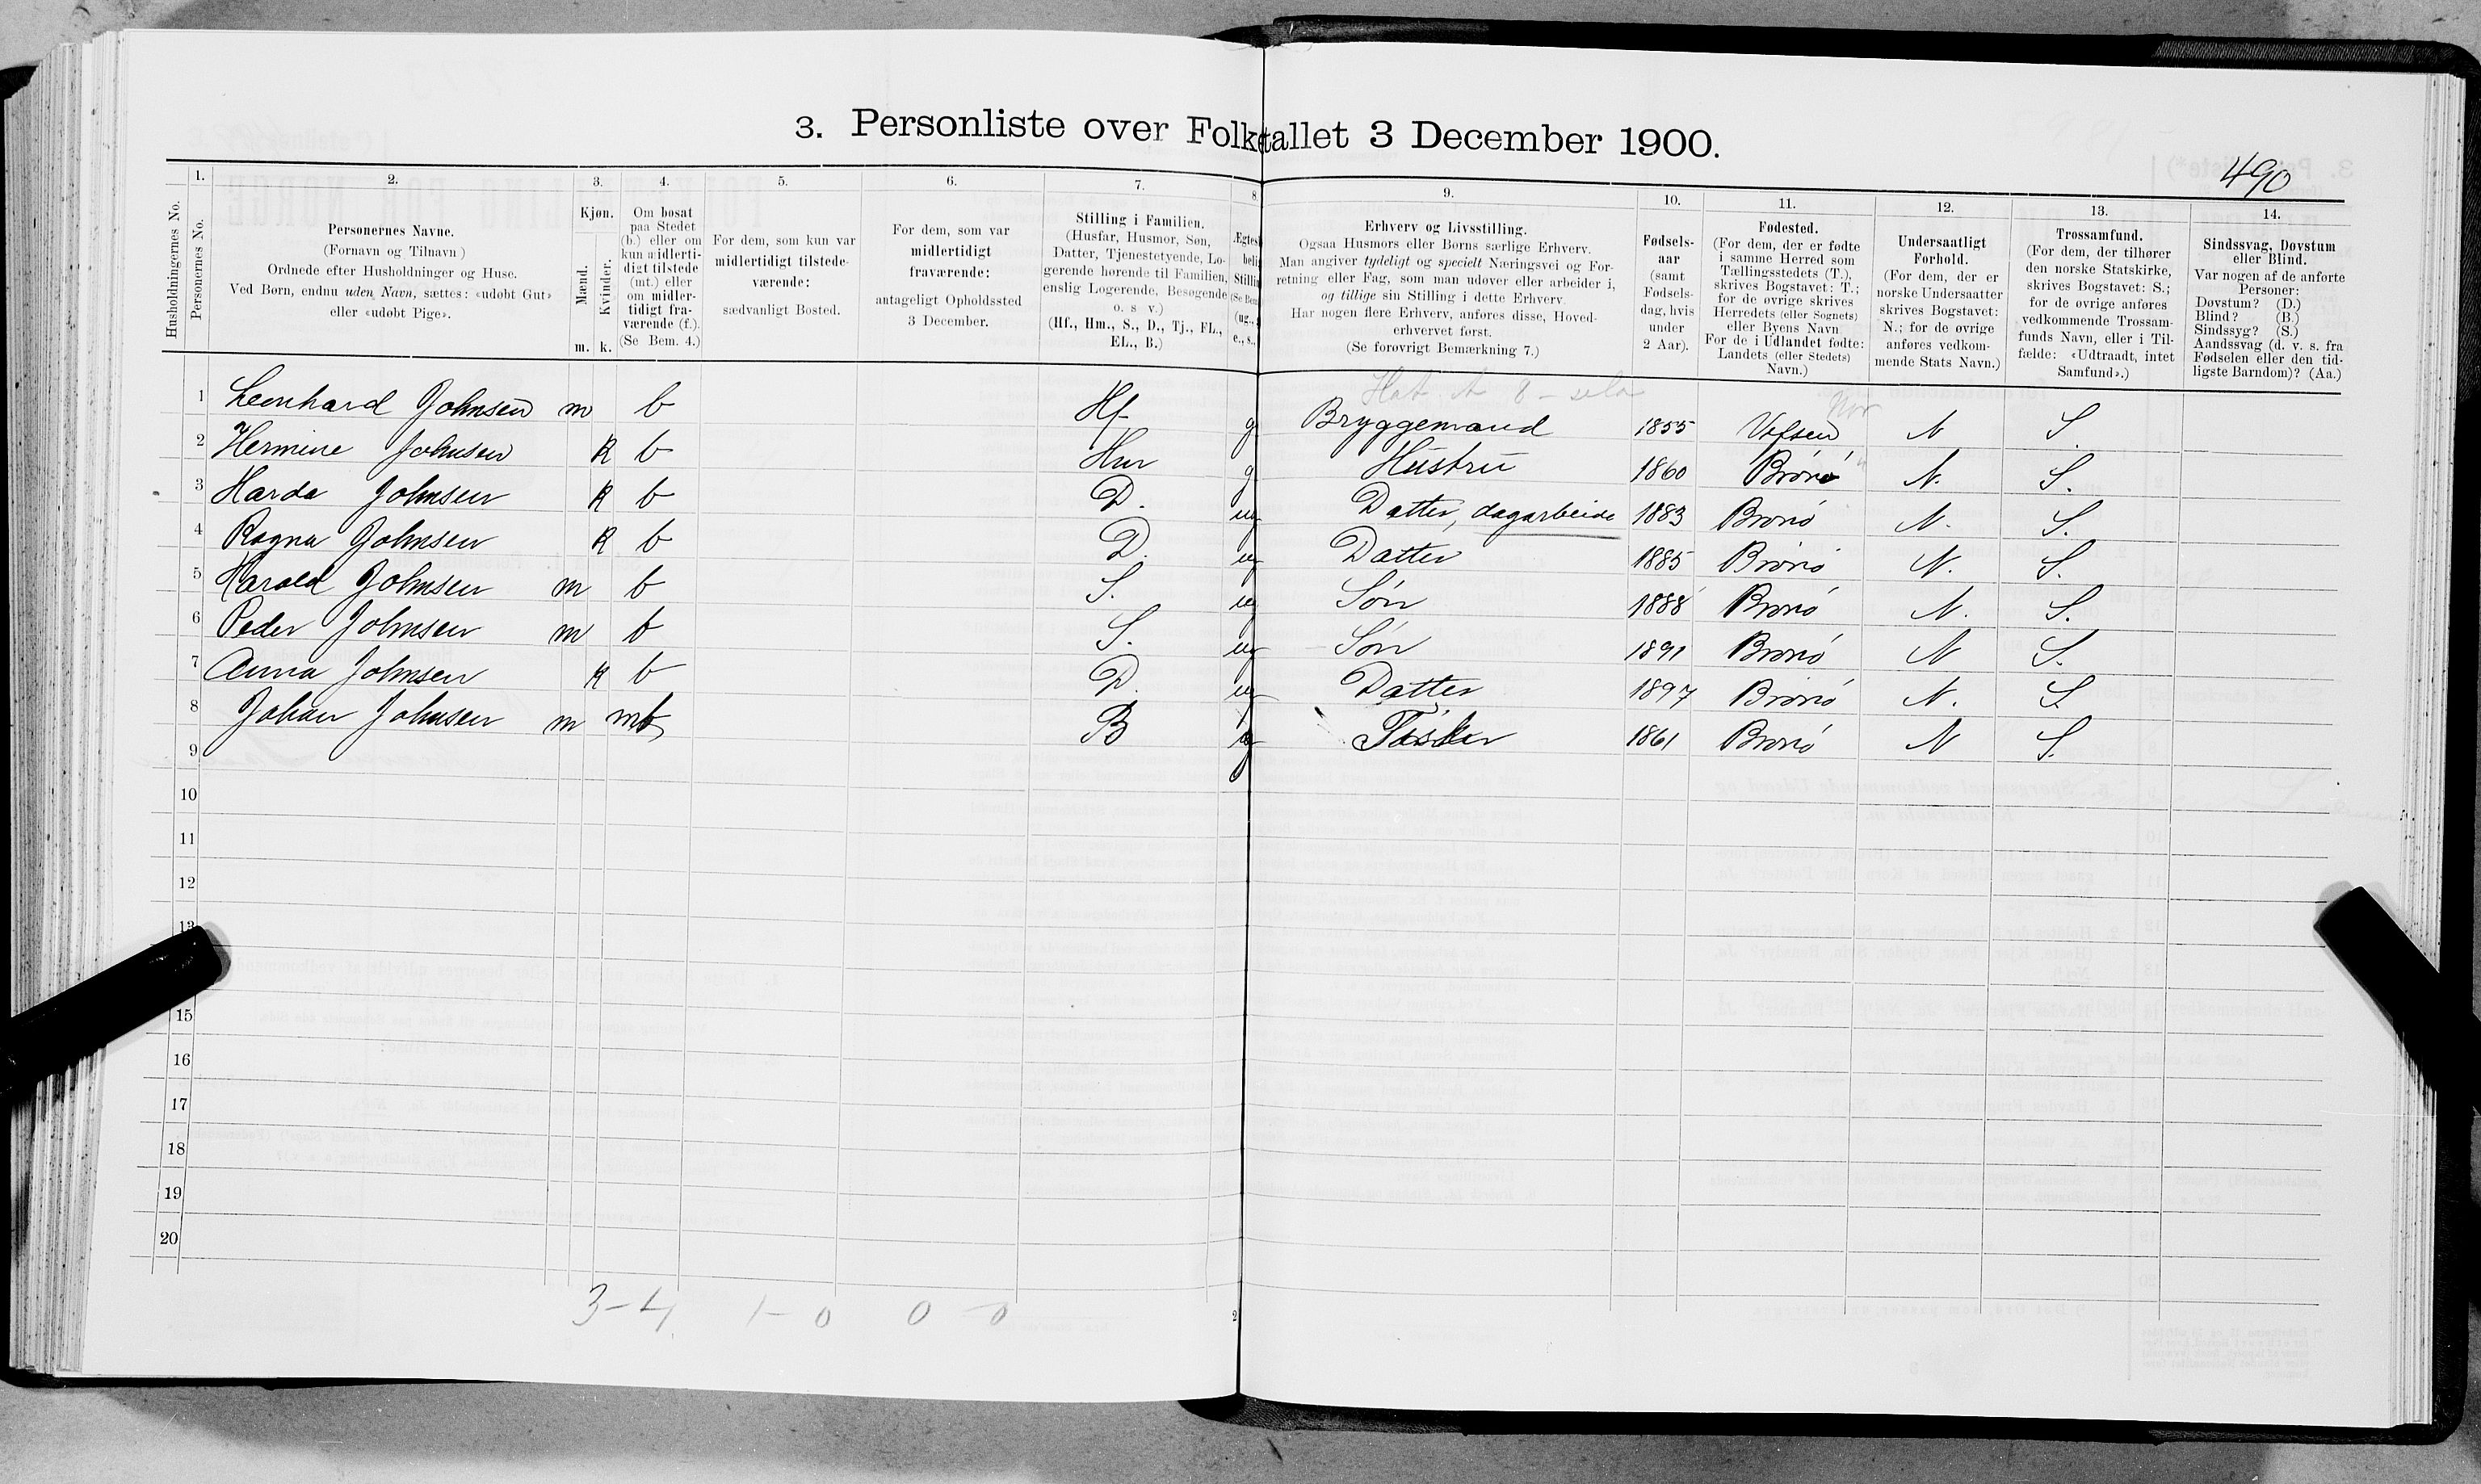 3. Personliste over Folketallet 3 December 1900.
490
Husholdningernes No.
1.
Personernes No.
2.
Personernes Navne.
(Fornavn og Tilnavn)
Ordnede efter Husholdninger og Huse.
Ved Børn, endnu uden Navn, sættes: «udøbt Gut»
eller «udøbt Pige».
3.
Kjøn.
Mænd.
Kvinder.
m. k.
4.
Om bosat
paa Stedet
(b.) eller om
kun midlerti-
digt tilstede
(mt.) eller
om midler-
tidigt fra-
værende (f.).
(Se Bem. 4.)
5.
For dem, som kun var
midlertidigt tilstede-
værende:
sædvanligt Bosted.
6.
For dem, som var
midlertidigt
fraværende:
antageligt Opholdssted
3 December.
7.
Stilling i Familien.
(Husfar, Husmor, Søn,
Datter, Tjenestetyende, Lo-
gerende hørende til Familien,
enslig Logerende, Besøgende
o. s v.)
(Hf., Hm., S., D., Tj., FL.,
EL., B.)
8
Ægtes
belig
Stillin
(Se Bem
(ug.,
e., s.,
9.
Erhverv og Livsstilling.
Ogsaa Husmors eller Børns særlige Erhverv.
Man angiver tydeligt og specielt Næringsvei og For-
retning eller Fag, som man udøver eller arbeider i,
og tillige sin Stilling i dette Erhverv.
Har nogen flere Erhverv, anføres disse, Hoved-
erhvervet først.
(Se forøvrigt Bemærkning 7.)
10.
Fødsels-
aar
(samt
Fødsels-
dag, hvis
under
2 Aar).
11.
Fødested.
(For dem, der er fødte
i samme Herred som
Tællingsstedets (T.),
skrives Bogstavet: T.;
for de øvrige skrives
Herredets (eller Sognets)
eller Byens Navn
For de i Udlandet fødte:
Landets (eller Stedets)
Navn.)
12.
Undersaatligt
Forhold.
(For dem, der er
norske Undersaatter
skrives Bogstavet:
N.; for de øvrige
anføres vedkom-
mende Stats Navn.)
13.
Trossamfund.
(For dem, der tilhører
den norske Statskirke,
skrives Bogstavet: S.;
for de øvrige anføres
vedkommende Trossam-
funds Navn, eller i Til-
fælde: «Udtraadt, intet
Samfund».)
14.
Sindssvag, Døvstum
eller Blind.
Var nogen af de anførte
Personer:
Døvstum? (D.)
Blind? (B.)
Sindssyg? (S.)
Aandssvag (d. v. s. fra
Fødselen eller den tid-
ligste Barndom)? (Aa.)
1 Leonhard Johnsen m b Hf g Bryggemand 1855 Vefsen N S.
2 Hermine Johnsen k b Hm g Hustru 1860 Brønø N. S.
3 Harda Johnsen k b D. ug Datter, dagarbeide 1883 Brønø N. S.
4 Ragna Johnsen k b D. ug Datter 1885 Brønø N. S.
5 Harald Johnsen m b S. ug Søn 1888 Brønø N. S.
6 Peder Johnsen m b S. ug Søn 1891 Brønø N S.
7 Anna Johnsen k b D. ug Datter 1897 Brønø N. S
8 Johan Johnsen m mt B g Fisker 1861 Brønø N S.
9
10
11
12
13
15
16
17
18
19
20
3-4 1-0 0-0
2